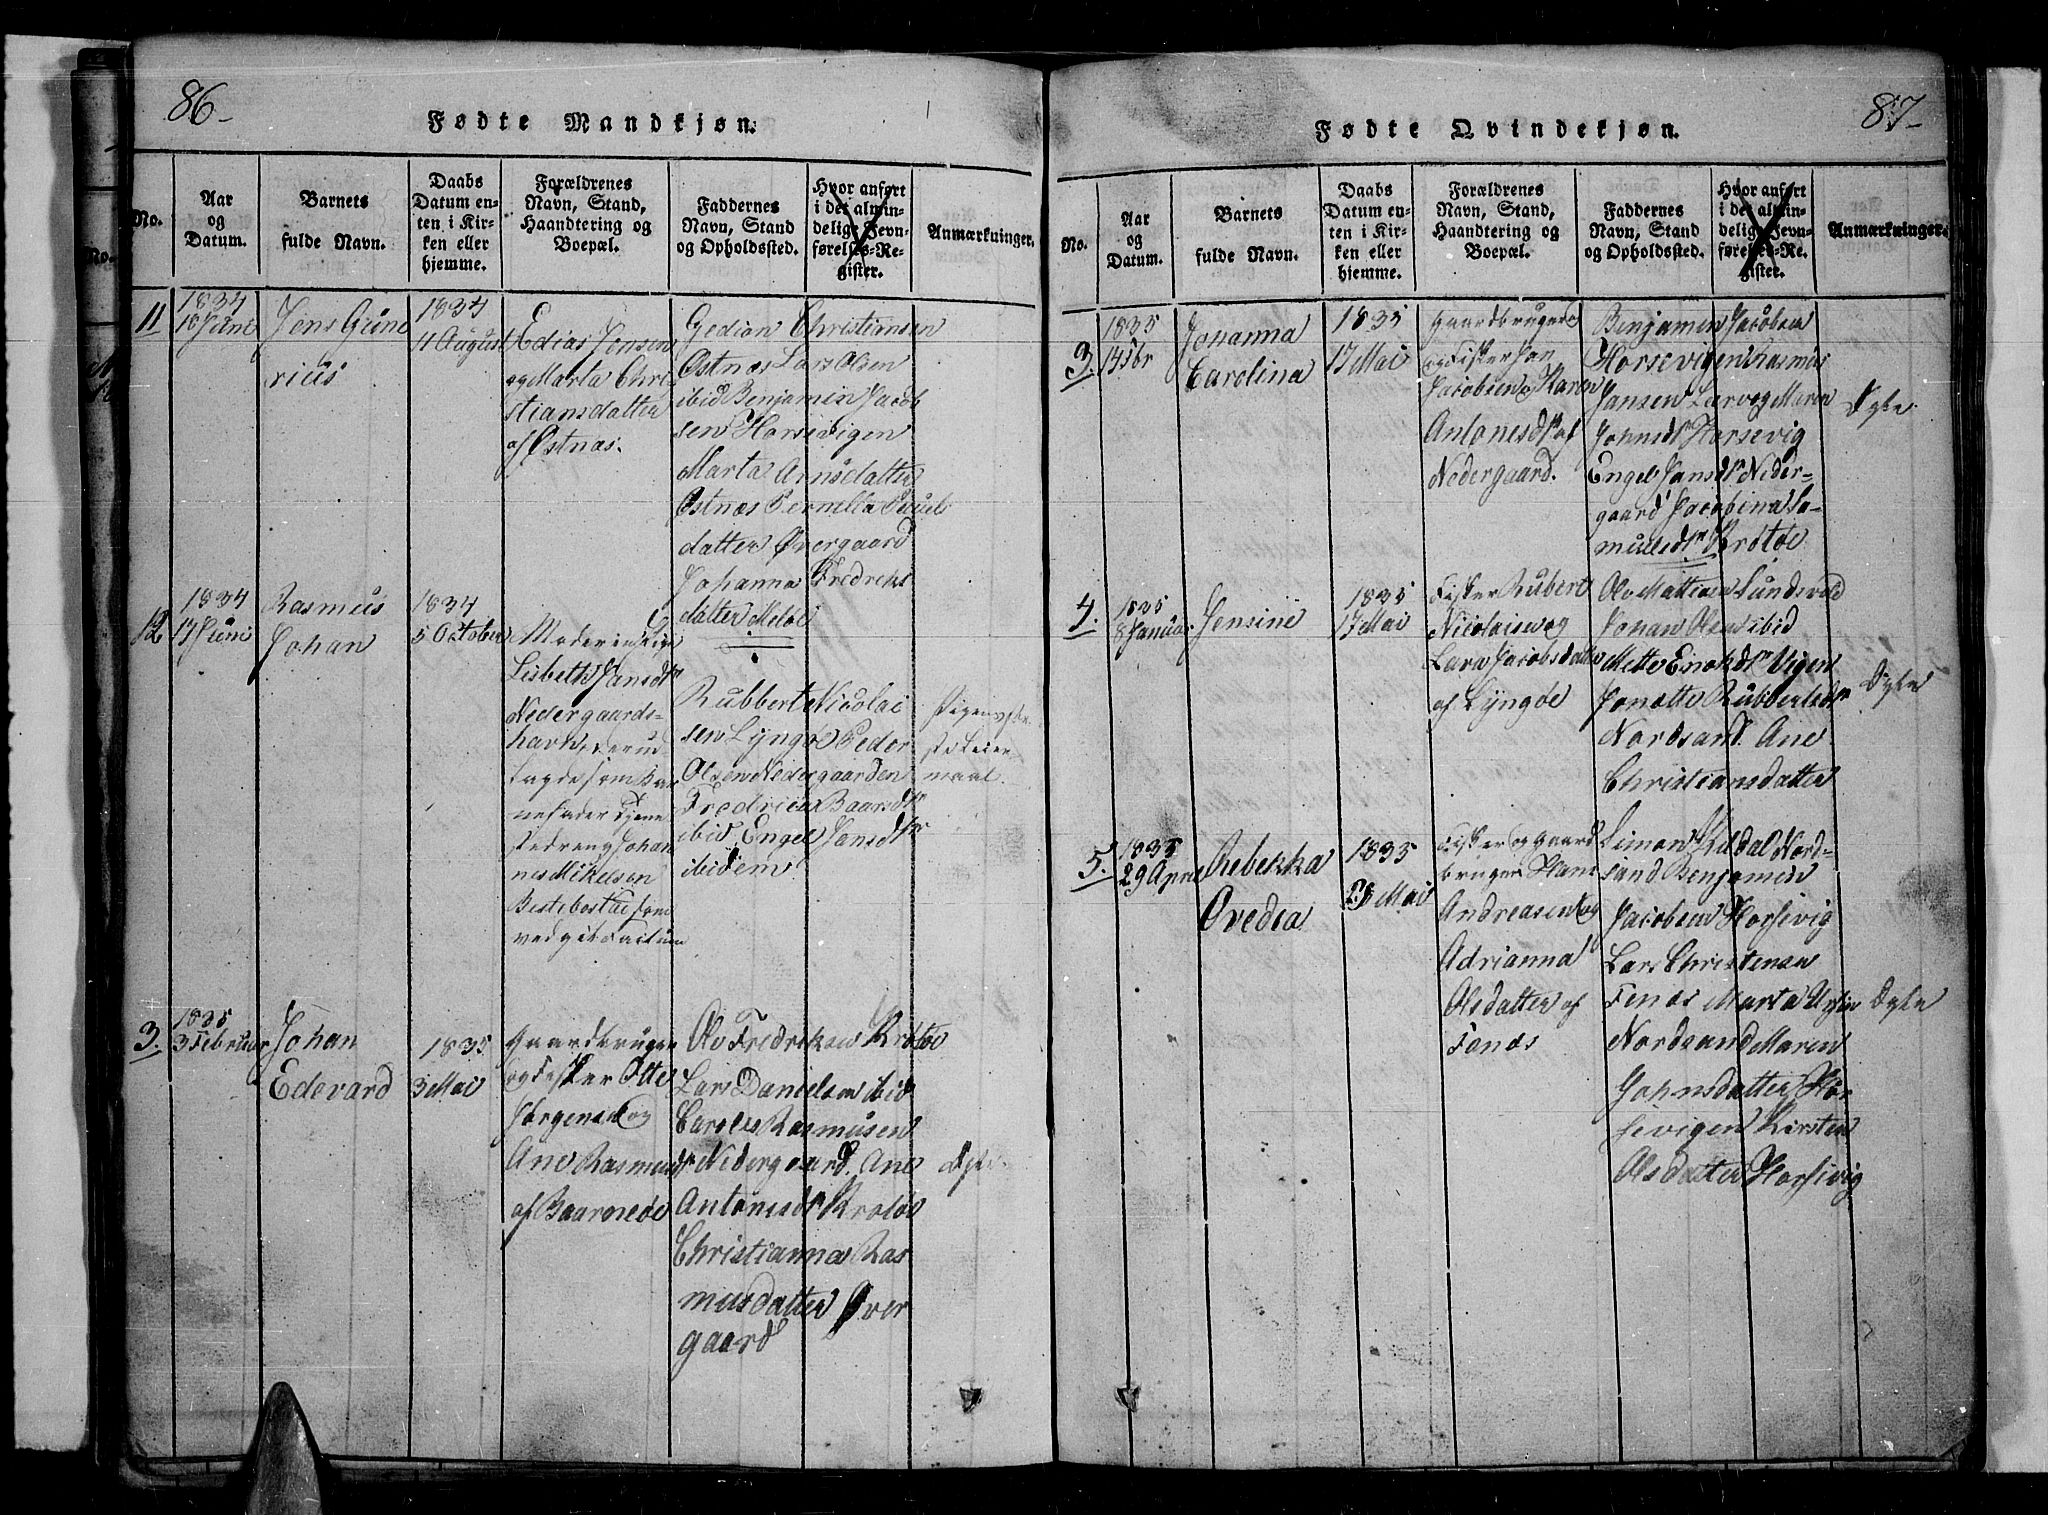 86
Fødte Mandkjøn.
No.
Aar
og
Datum.
Barnets
fulde Navn.
Daabs
Datum en-
ten i Kir-
ken eller
hjemme.
Forældrenes
Navn, Stand,
Haandtering og
Boepæl.
Faddernes
Navn, Stand
og Opholdssted.
Hvor anført
i det almin-
delige Jevn-
førelses-Re-
gister.
Anmærkninger.
11
1834
18 Juni
Jens Gune
rius
1834
11 August
Edias Jensen
og Marta Chri
stiansdatter
af Østnæs.
Gedion Christiansen
Østnæs Lars Olsen
ibid Benjamin Jacob
sen Horsevigen
Marta Arnsdatter
Østnæs Pernella Poüel
datter Øvergaard
Johanna Fredriks
datter Meløe
12
1834
17 Juni
Rasmus
Johan
1834
5 October
Moder en Pige
Lisbeth Jansdr
Nedergaards-
havn
lagde som Bar
nefader Tjene
stedreng Johan
nes Mikelsen
Bestebostad som
vedgik Factum
Rubbert Nicolai
sen Lyngøe Peder
Olsen Nedergaarden
Fredrica Baarsdr
ibid Engel Jansdr
ibidem
Pigens
ste Leier-
maal.
3.
1835
3 Februar
Johan
Edevard
1835
3 Mai
Gaardbruger
og Fisker Otte
Jørgensen og
Ane Rasmusdr
af Baarnøe
Ole Fredriksen Krotøe
Lars Danielsen ibid
Carolus Rasmusen
Nedergaard. Ane
Antonesdr Krotøe
Christianna Ras
musdatter Øver
gaard
Dgte
87
Fødte Qvindekjøn.
No.
Aar
og
Datum.
Barnets
fulde Navn.
Daabs
Datum en-
ten i Kir-
ken eller
hjemme.
Forældrenes
Navn, Stand,
Haandtering og
Boepæl.
Faddernes
Navn, Stand
og Opholdssted.
Hvor anført
i det almin-
delige Jevn-
førelses-Re-
gister.
Anmærkninger.
3.
1835
Johanna
Carolina
1835
17 Mai
Gaardbruger
og Fisker Jan
Jacobsen og Karen
Antonesdr af
Nedergaard.
Benjamen Jacobsen
Horsevigen Rasmus
Jansen Larvog Maren
Johnsdr Horsevig
Engel Jansdr Neder-
gaard Jacobina Sa-
muelsdr Krotøe
Dgte
4.
1835
8 Januar
Jensine
1835
17 Mai
Fisker Rubert
Nicolaisen og
Lara Jacobsdatter
af Lyngøe
Ole Mattisen Sundsvold
Johan Olsen ibid
Mette Enokdr Vigen
Janette Rubbertsdr
Nordsand. Ane
Christiansdatter
Dgte
5.
1835
29 April
Rebekka
Ovedia
1835
Mai
Fisker og Gaard
bruger Hans
Andreasen og
Adrianna
Olsdatter af
Fenøs
Simon Kildal Nord-
sand Benjamen
Jacobsen Horsevig
Lars Christensen
Fenøs Marta
Nordsand Maren
Johnsdatter Hor
sevigen Kirsten
Olsdatter Horsevig
Dgte